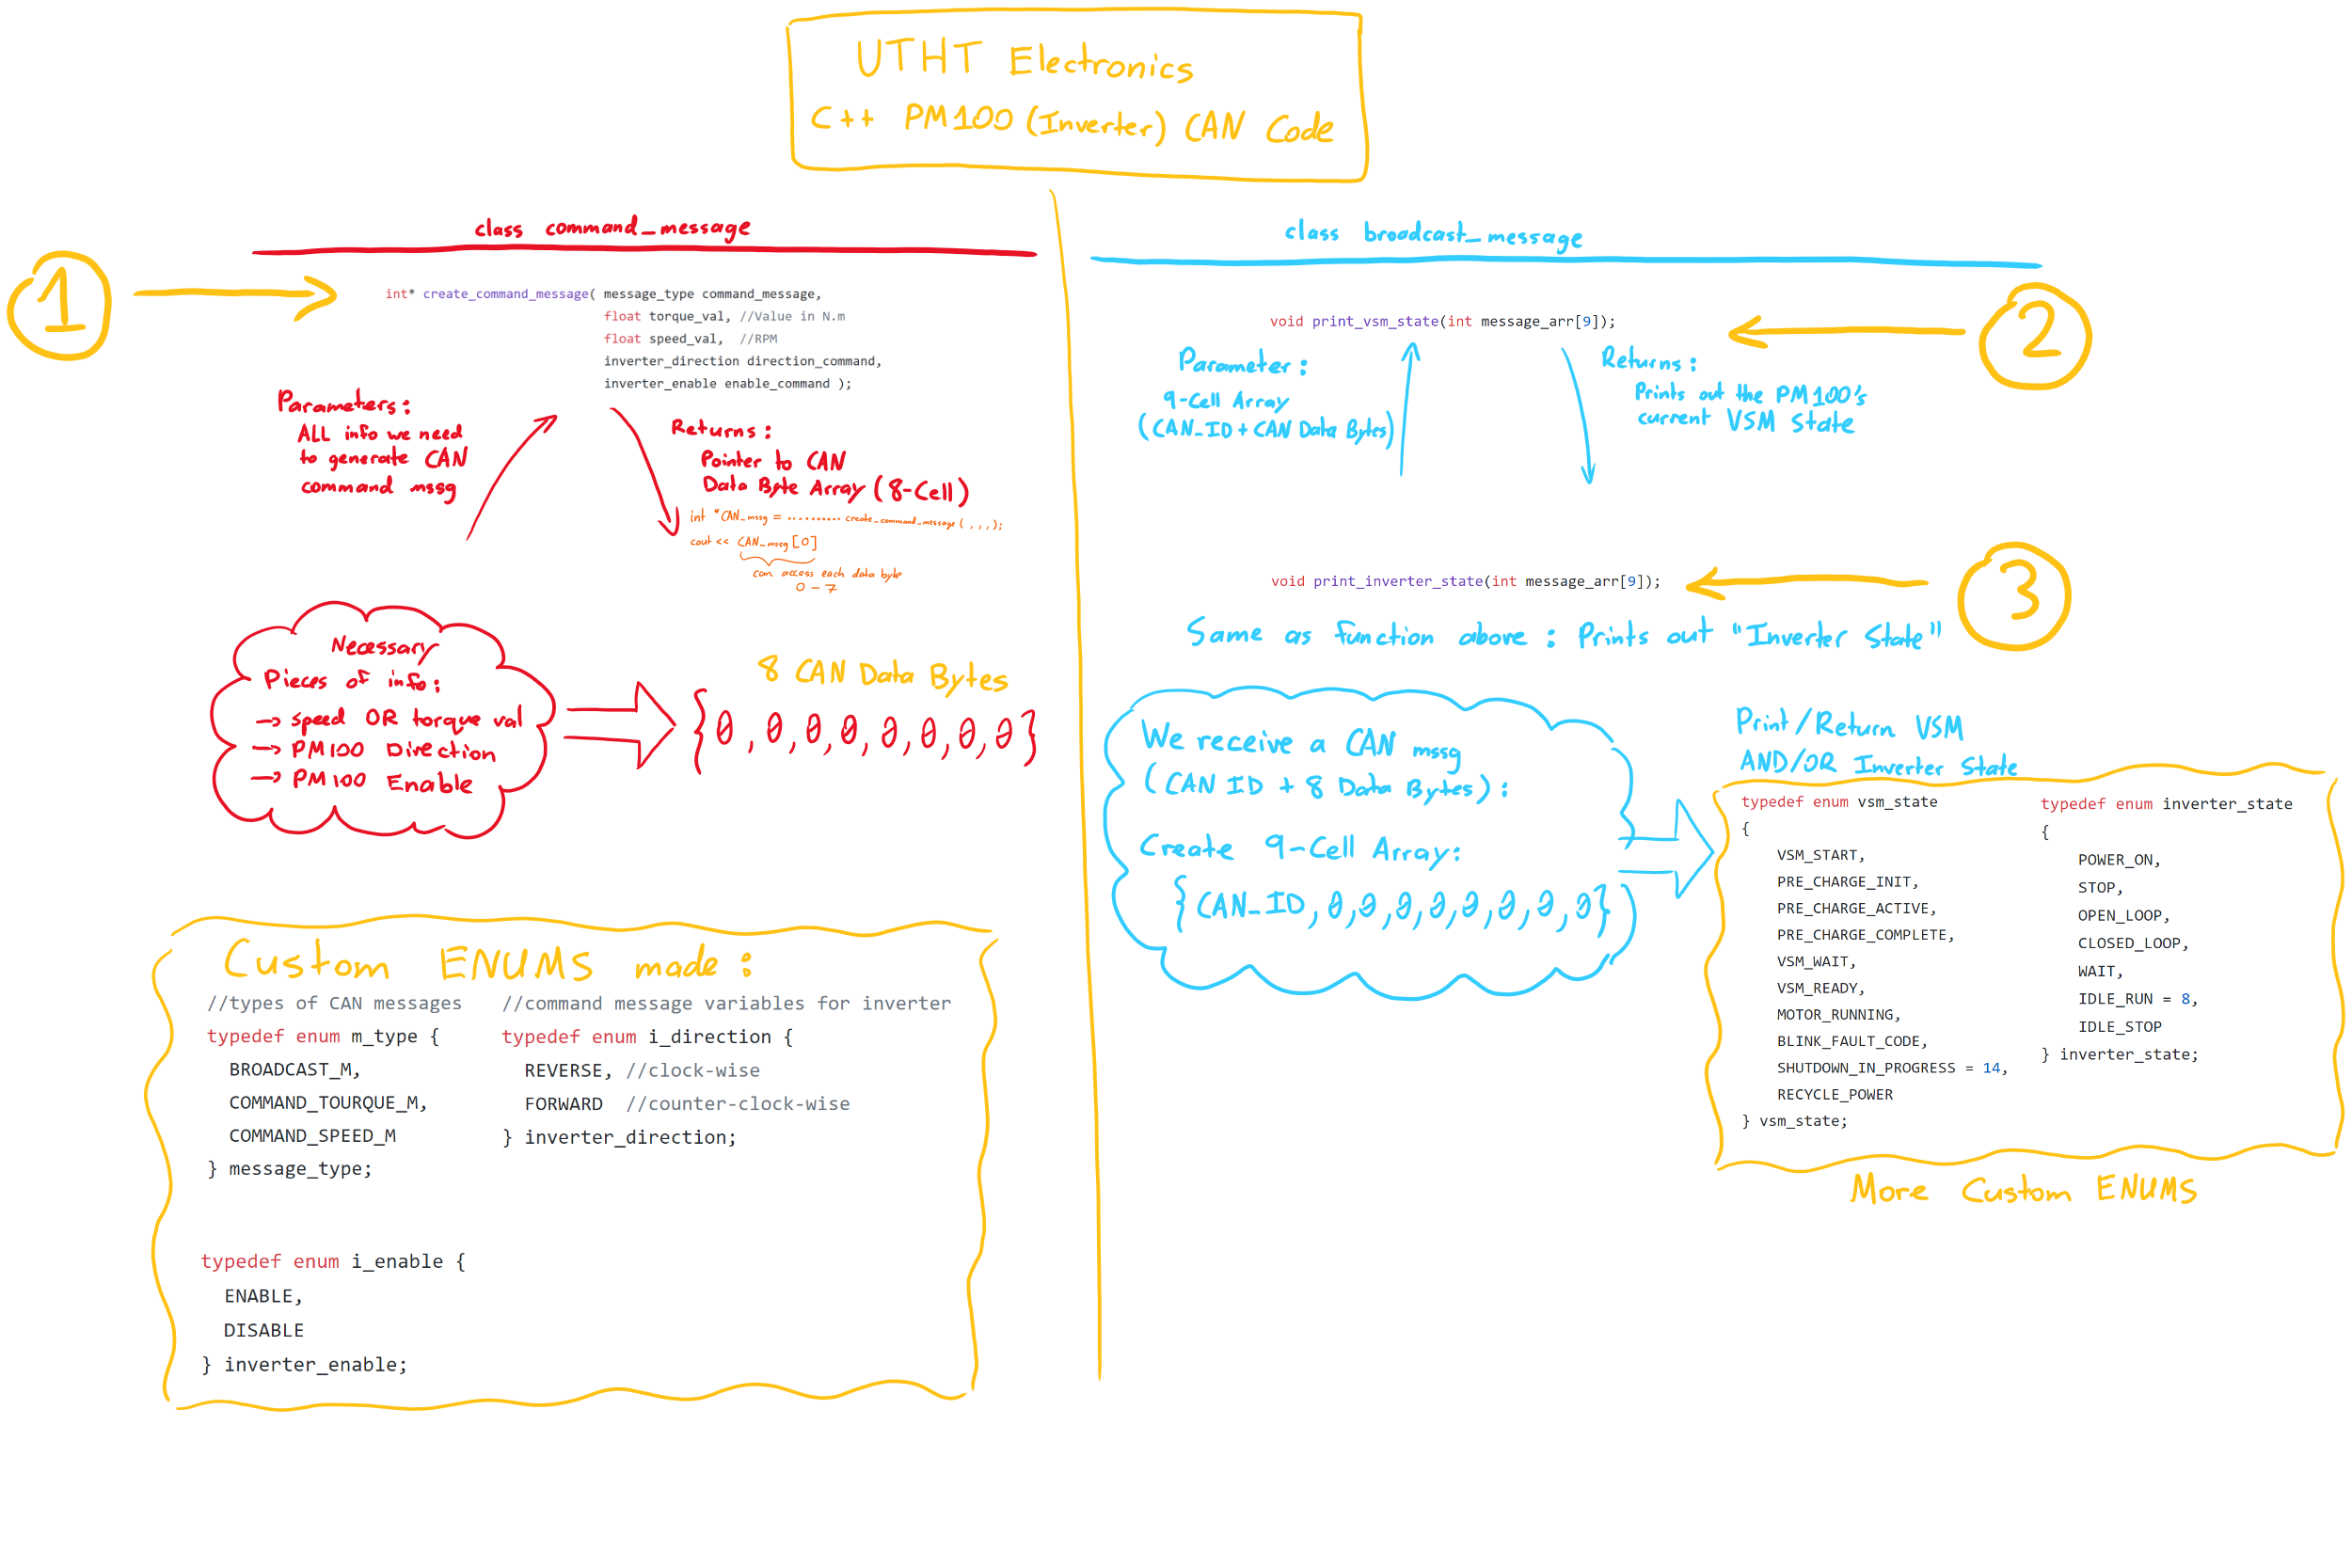 UTHT Electronics
C++ PM100 (Inverter) CAN Code
class command_message
1
int* create_command_message( message_type command_message,
float torque_val, //Value in N.m
float speed_val, //RPM
inverter_direction direction_command,
inverter_enable enable_command );
Parameters:
ALL info we need
to generate CAN
command mssg
Returns:
Pointer to CAN
Data Byte Array (8-Cell)
int *CAN_mssg = .......... create_command_message( , , , );
cout << CAN_mssg[0]
can access each data byte
0 - 7
Necessary
Pieces of info:
-> speed OR torque val
-> PM100 Direction
-> PM100 Enable
8 CAN Data Bytes
{0,0,0,0,0,0,0,0}
Custom ENUMS made:
//types of CAN messages
typedef enum m_type {
BROADCAST_M,
COMMAND_TOURQUE_M,
COMMAND_SPEED_M
} message_type;
//command message variables for inverter
typedef enum i_direction {
REVERSE, //clock-wise
FORWARD //counter-clock-wise
} inverter_direction;
typedef enum i_enable {
ENABLE,
DISABLE
} inverter_enable;
class broadcast_message
2
void print_vsm_state(int message_arr[9]);
Parameter:
9-Cell Array
(CAN_ID + CAN Data Bytes)
Returns:
Prints out the PM100's
current VSM State
3
void print_inverter_state(int message_arr[9]);
Same as function above: Prints out "Inverter State"
We receive a CAN mssg
(CAN ID + 8 Data Bytes):
Create 9-Cell Array:
{CAN_ID,0,0,0,0,0,0,0,0}
Print/Return VSM
AND/OR Inverter State
typedef enum vsm_state
{
VSM_START,
PRE_CHARGE_INIT,
PRE_CHARGE_ACTIVE,
PRE_CHARGE_COMPLETE,
VSM_WAIT,
VSM_READY,
MOTOR_RUNNING,
BLINK_FAULT_CODE,
SHUTDOWN_IN_PROGRESS = 14,
RECYCLE_POWER
} vsm_state;
typedef enum inverter_state
{
POWER_ON,
STOP,
OPEN_LOOP,
CLOSED_LOOP,
WAIT,
IDLE_RUN = 8,
IDLE_STOP
} inverter_state;
More Custom ENUMS